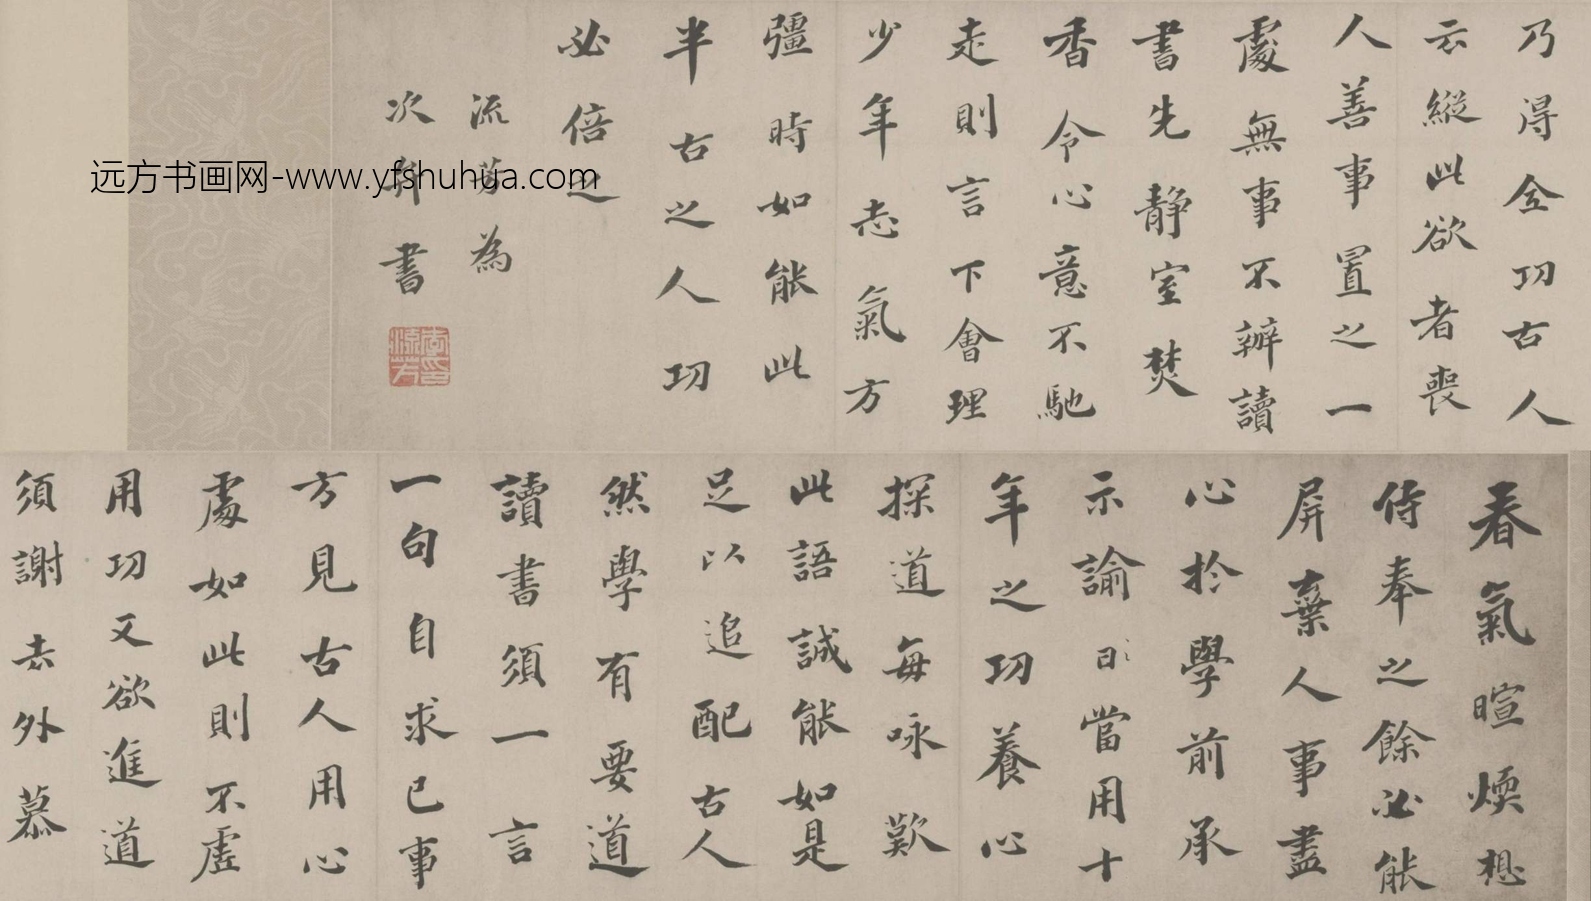 春氣暄煖想
侍奉之餘必能
屏棄人事盡
心於學前承
示諭日當用十
年之功養心
探道每咏歎
此語誠能如是
足以追配古人
然學有要道
讀書須一言
一句自求己事
方見古人用心
處如此則不虛
用功又欲進道
須謝去外慕
乃得全功古人
云縱此欲者喪
人善事置之一
處無事不辦讀
書先静室焚
香令心意不馳
走則言下會理
少年志氣方
彊時如能此
半古之人功
必倍之
流芳為
次 書
远方书画网-www.yfshuhua.com